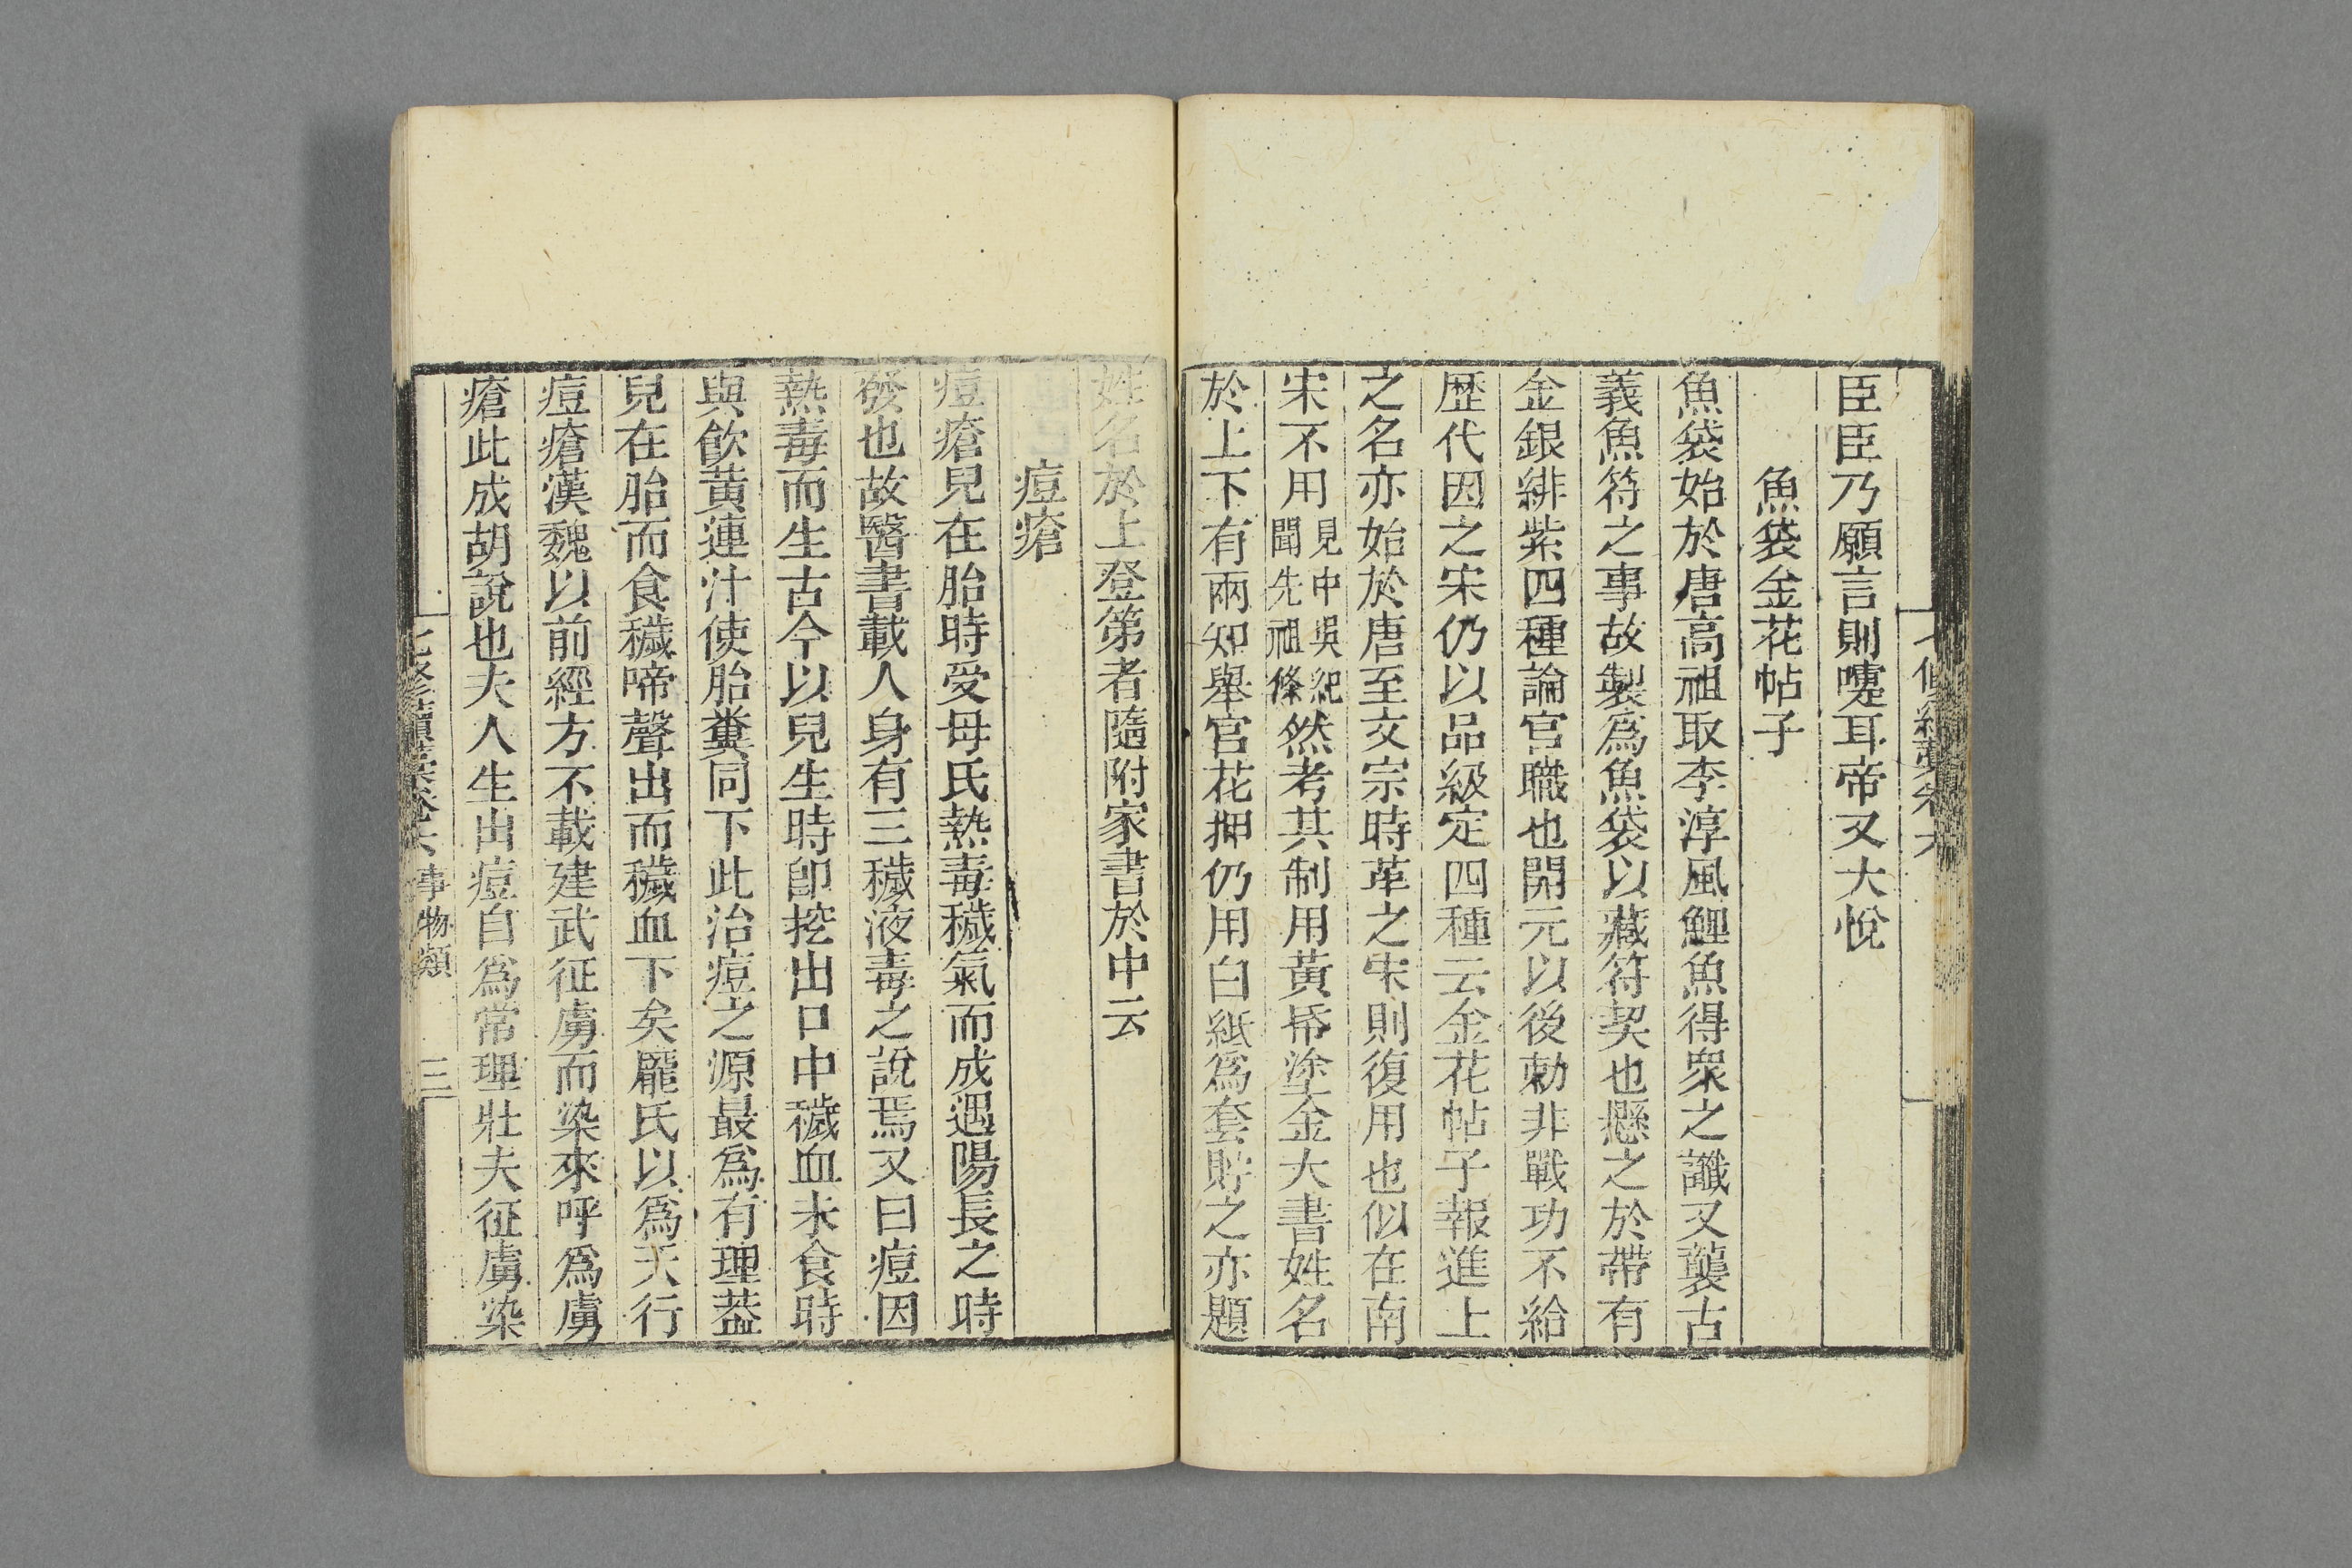 臣臣乃願言則嚏耳帝又大悅
魚袋金花帖子
魚袋始於唐高祖取李淳風鯉魚得衆之讖又襲古
義魚符之事故製爲魚袋以藏符契也懸之於帶有
金銀緋紫四種論官職也開元以後勅非戰功不給
歴代因之宋仍以品級定四種云金花帖子報進上
之名亦始於唐至文宗時革之宋則復用也似在南
宋不用見中吳紀聞先祖條然考其制用黃帋塗金大書姓名
於上下有兩知舉官花押仍用白紙爲套貯之亦題
姓名於上登第者隨附家書於中云
痘瘡
痘瘡兒在胎時受母氏熱毒穢氣而成遇陽長之時
發也故醫書載人身有三穢液毒之說焉又曰痘因
熱毒而生古今以兒生時卽挖出口中穢血未食時
與飮黃連汁使胎糞同下此治痘之源最爲有理葢
兒在胎而食穢啼聲出而穢血下矣龐氏以爲天行
痘瘡漢魏以前經方不載建武征虜而染來呼爲虜
瘡此成胡說也夫人生出痘自爲常理壯夫征虜染
七修續藁卷六 事物類 三